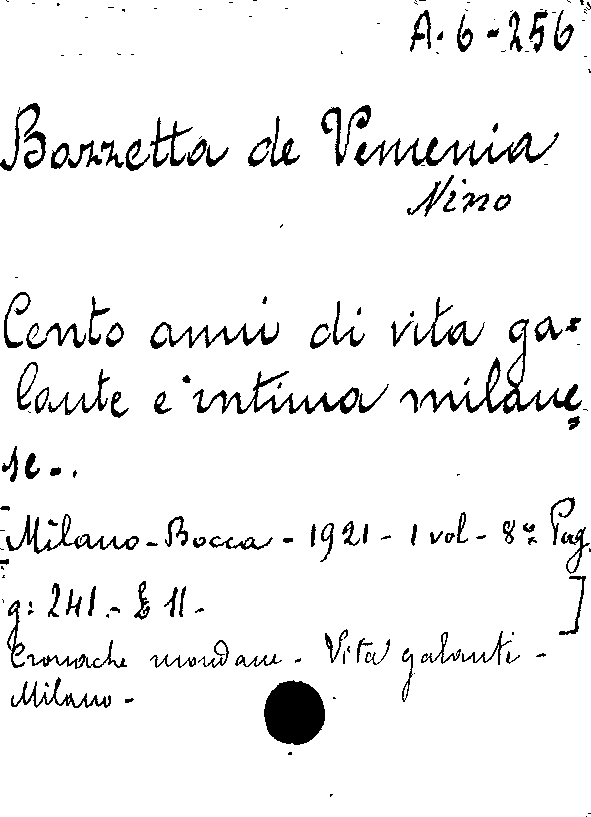 A-6-256
Bazzetta de Vemenia
Nino
Cento anni di vita ga-
lante e intima milane
se-.
[Milano-Bocca-1921-1 vol-8º Pag.
g: 241.-£ 11-]
Cronache mondane-Vita galanti-
Milano-